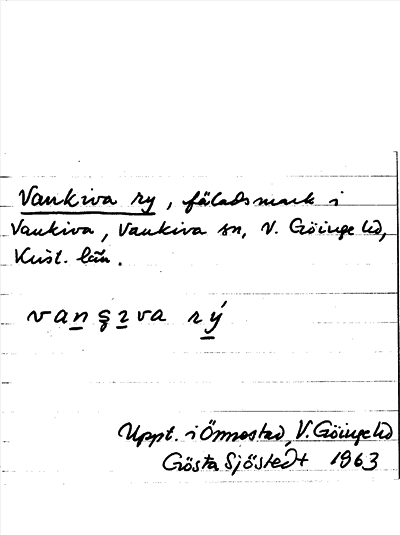 Vankiva ry, fäladsmark i
Vankiva, Vankiva sn, V. Göinge hd,
Krist. län.
vanşɪva rý
Uppt. i Önnestad, V. Göinge hd
Gösta Sjöstedt 1963